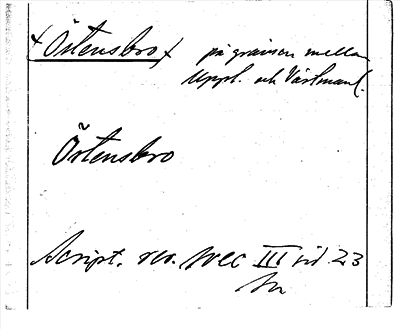 (Östensbro) på gränsen mellan
Uppl. och Västmanl.
Östensbro
Script. rer. svec III sid 23